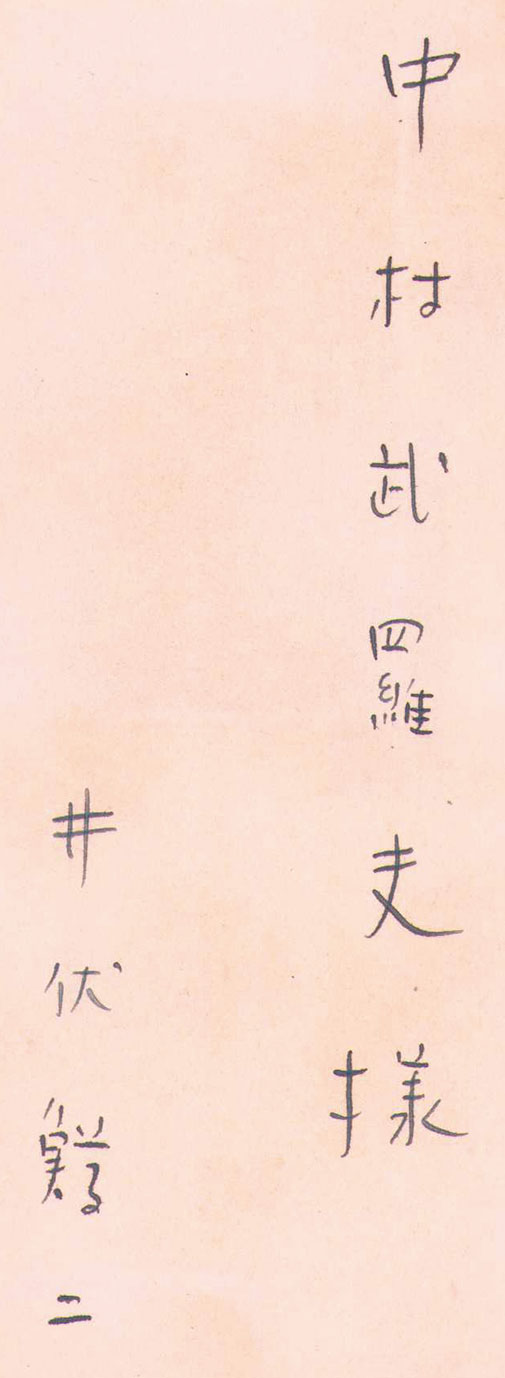 中村武羅夫様
井伏鱒二